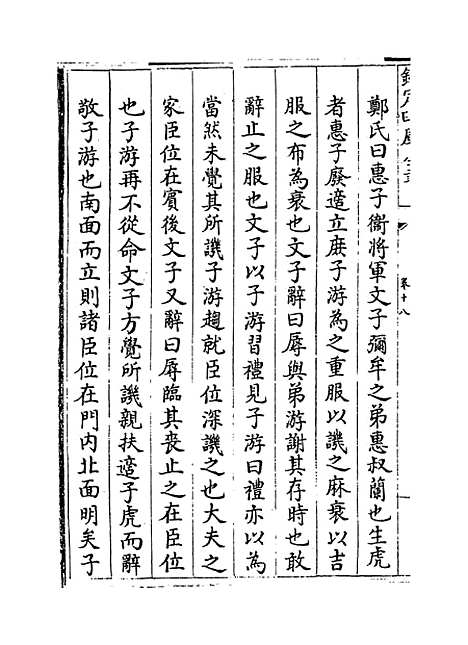 欽定四庫全書
卷十八
鄭氏曰惠子衞將軍文子彌牟之弟惠叔蘭也生虎
者惠子廢適立庻子游為之重服以譏之麻衰以吉
服之布為衰也文子辭曰辱與弟游謝其存時也敢
辭止之服也文子以子游習禮見子游曰禮亦以為
當然未覺其所譏子游趨就臣位深譏之也大夫之
家臣位在賔後文子又辭曰辱臨其喪止之在臣位
也子游再不從命文子方覺所譏親扶適子虎而辭
敬子游也南面而立則諸臣位在門内北面明矣子